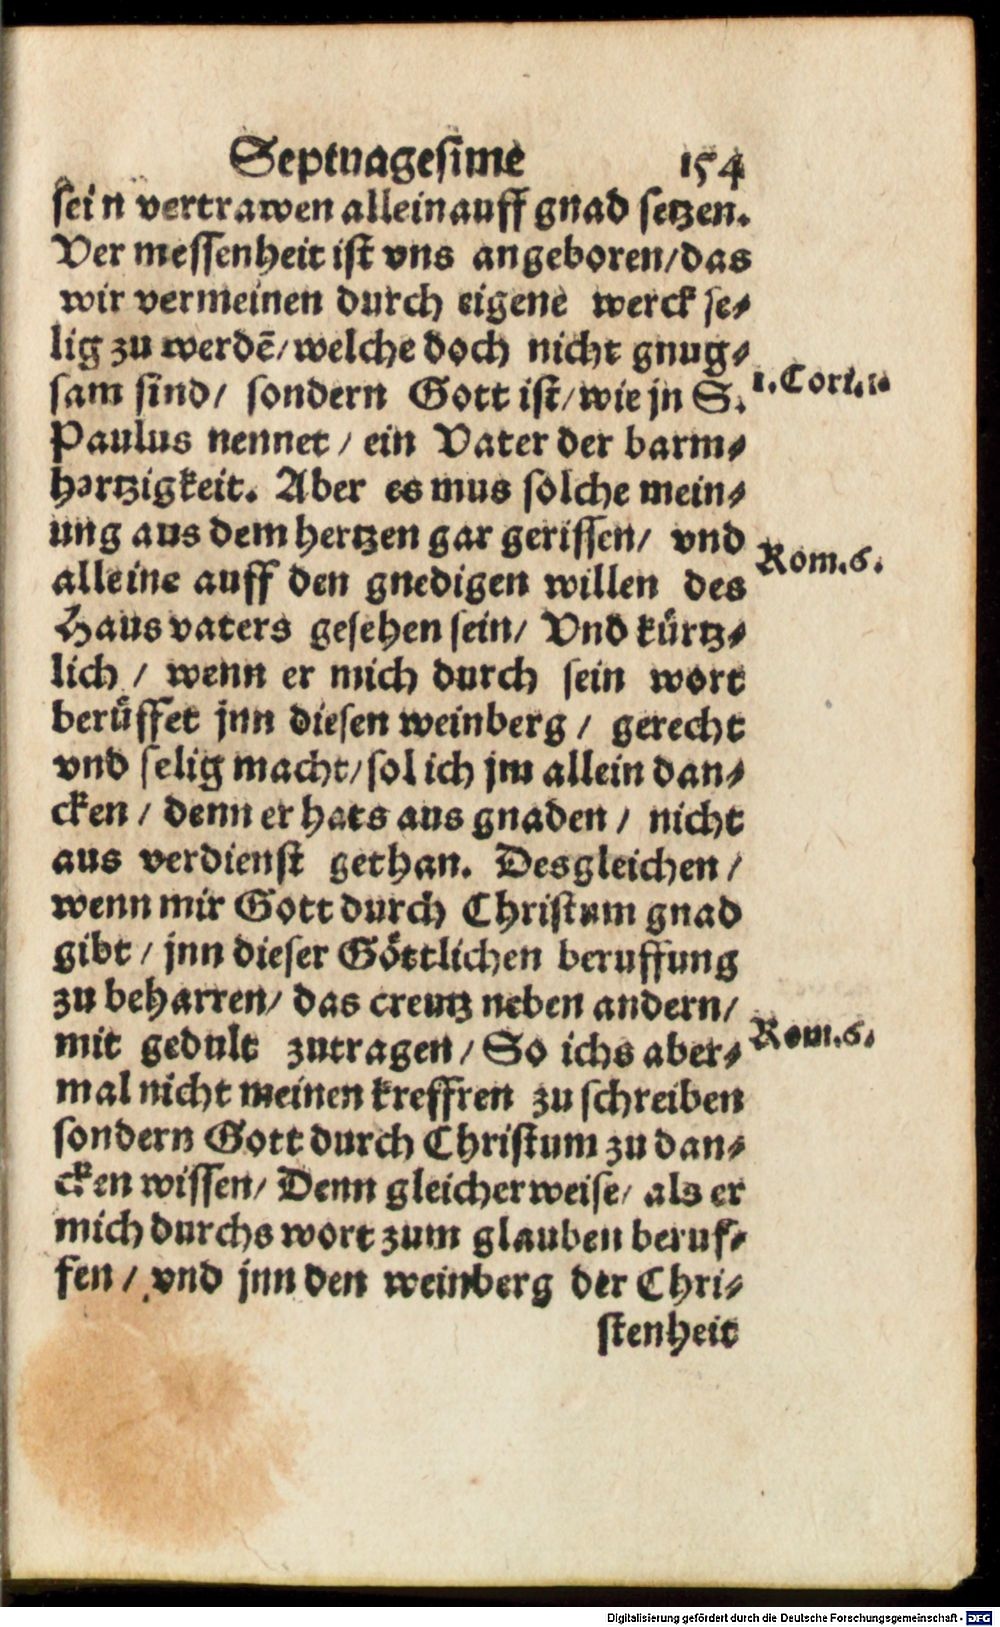 Septuagesime 154
sein vertrawen allein auff gnad setzen.
Ver messenheit ist vns angeboren/das
wir vermeinen durch eigene werck se-
lig zu werdē/welche doch nicht gnug-
sam sind/ sondern Gott ist/wie jn S.
1. Cor. 1.
Paulus nennet/ ein Vater der barm-
hertzigkeit. Aber es mus solche mein-
ung aus dem hertzen gar gerissen/ vnd
Rom. 6.
alleine auff den gnedigen willen des
Haus vaters gesehen sein/ Vnd kürtz-
lich/ wenn er mich durch sein wort
berüffet jnn diesen weinberg/ gerecht
vnd selig macht/sol ich jm allein dan-
cken/ denn er hats aus gnaden/ nicht
aus verdienst gethan. Desgleichen/
wenn mir Gott durch Christum gnad
gibt/ jnn dieser Göttlichen beruffung
zu beharren/ das creutz neben andern/
mit gedult zutragen/ So ichs aber-
Rom. 6.
mal nicht meinen krefften zu schreiben
sondern Gott durch Christum zu dan-
cken wissen/ Denn gleicher weise/ als er
mich durchs wort zum glauben beruf-
fen/ vnd jnn den weinberg der Chri-
stenheit
Digitalisierung gefördert durch die Deutsche Forschungsgemeinschaft - DFG